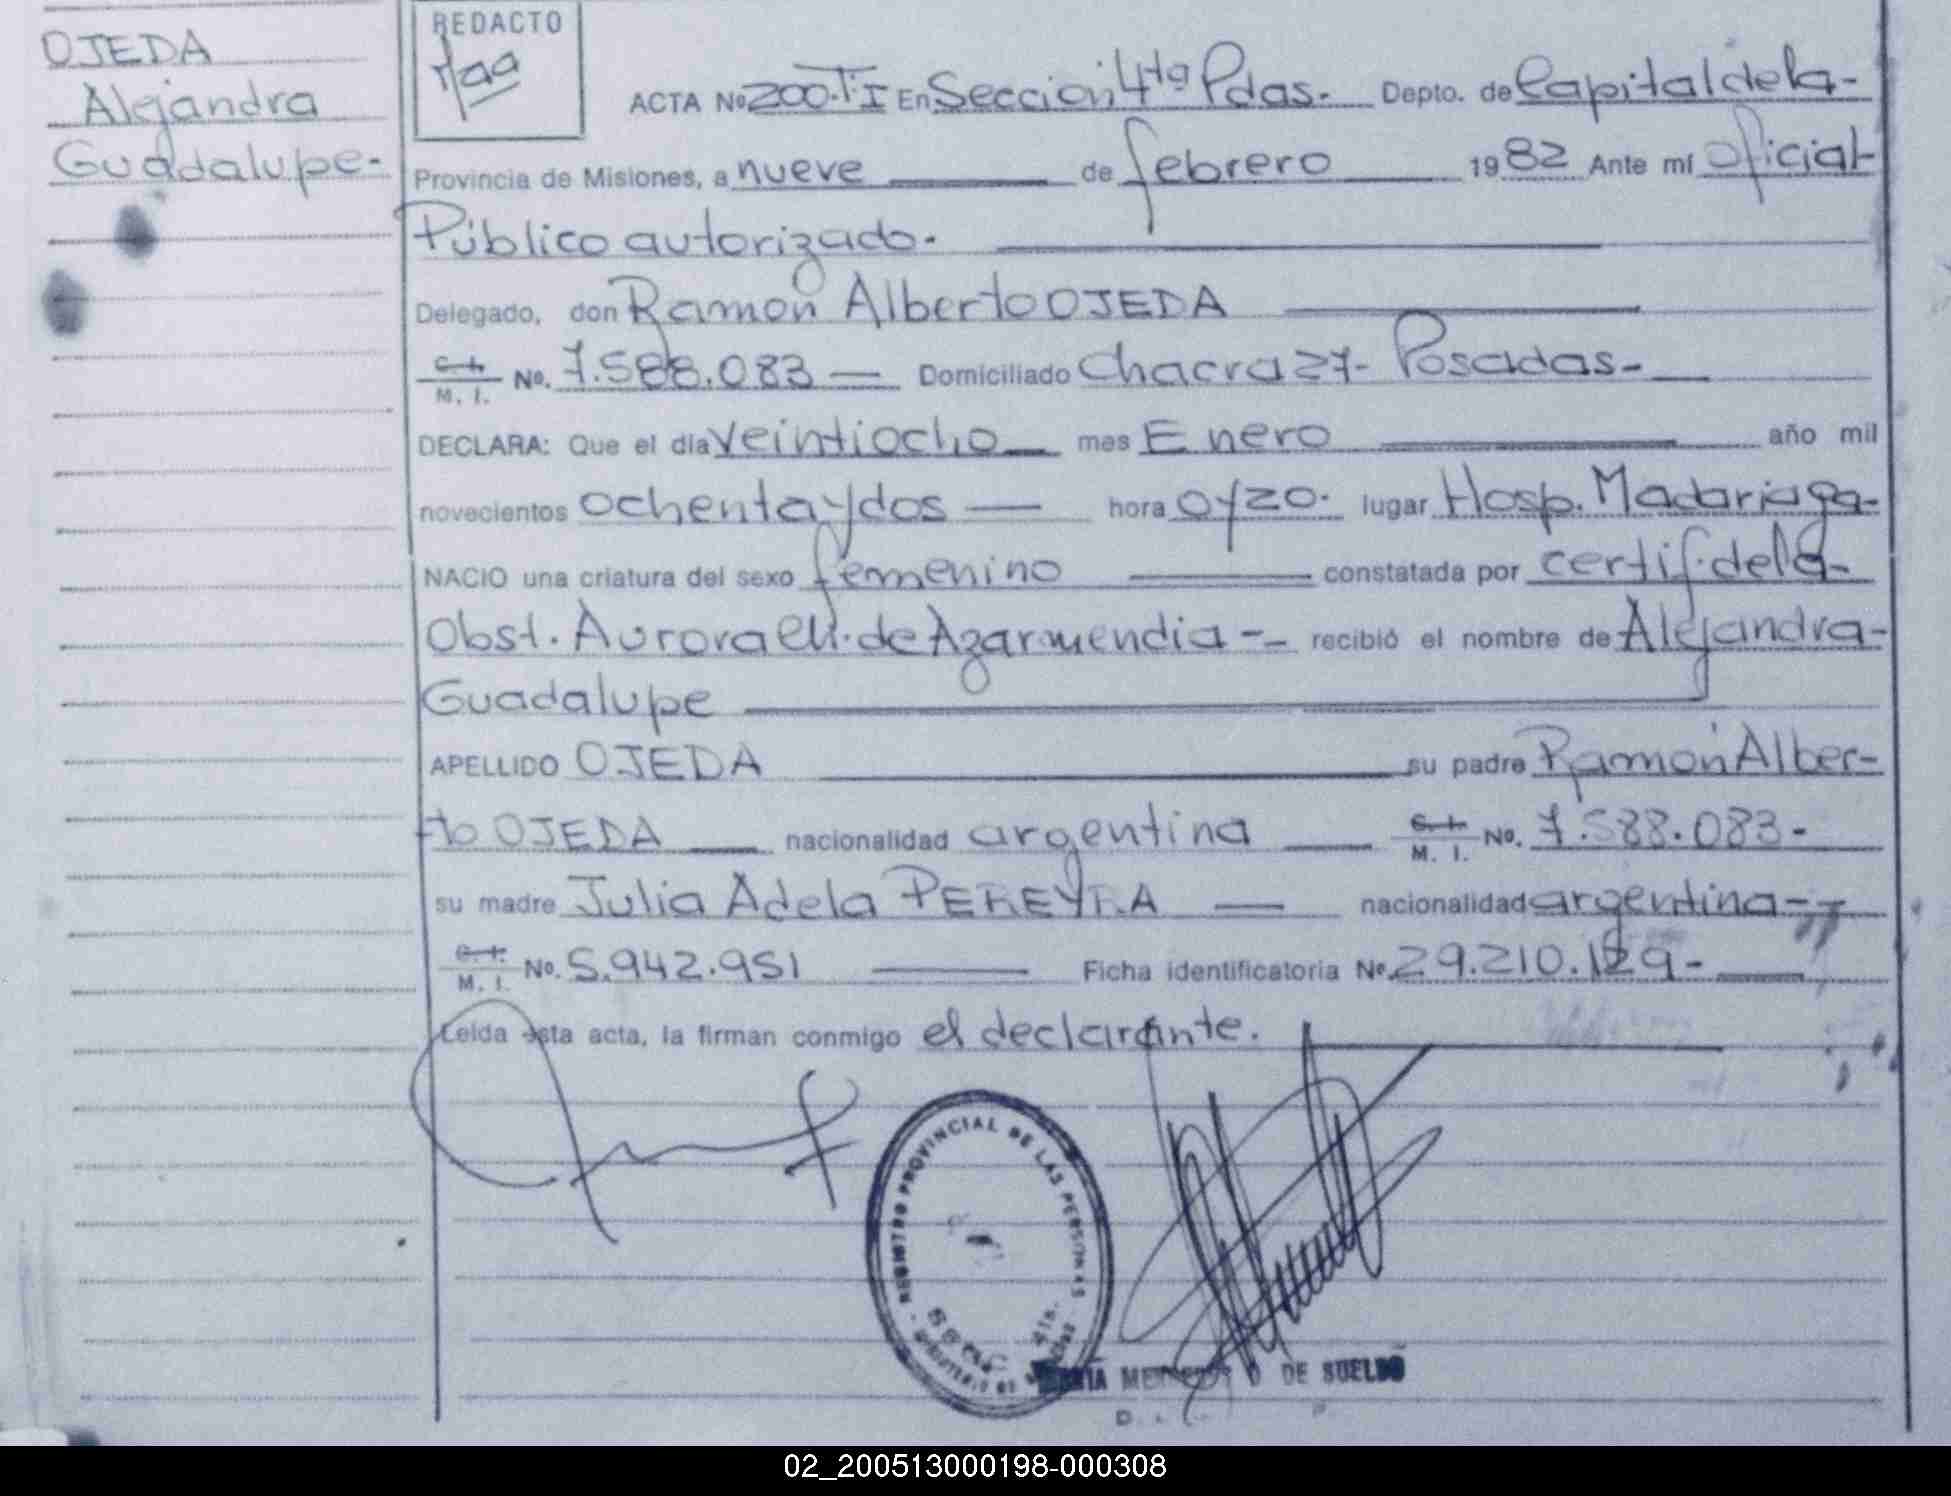 OJEDA
Alejandra
Guadalupe-
REDACTO
ACTA Nº 200-T-I En Sección 4ta Pdas. Depto. de Capital de la-
Provincia de Misiones, a nueve de febrero 1982 Ante mí Oficial
Público autorizado.
Delegado, don Ramón Alberto OJEDA
C. I. M. I. No. 7.588.083 — Domiciliado Chacra 27- Posadas-
DECLARA: Que el día veintiocho mes Enero año mil
novecientos ochenta y dos — hora 0y20. lugar Hosp. Madariaga-
NACIO una criatura del sexo femenino constatada por certif. de la-
Obst. Aurora de Azarmendia -- recibió el nombre de Alejandra-
Guadalupe
APELLIDO OJEDA su padre Ramón Alber-
to OJEDA nacionalidad argentina C. I. M. I. No. 7.588.083-
su madre Julia Adela PEREYRA — nacionalidad argentina--
C. I. M. I. No. 5.942.951 Ficha identificatoria No. 29.210.129-
Leída ésta acta, la firman conmigo el declarante.
REGISTRO PROVINCIAL DE LAS PERSONAS
DE SUELDO
02_200513000198-000308